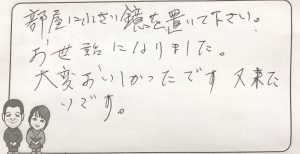 部屋に小さい鏡を置いて下さい。
お世話になりました。
大変おいしかったです 又来た
いです。